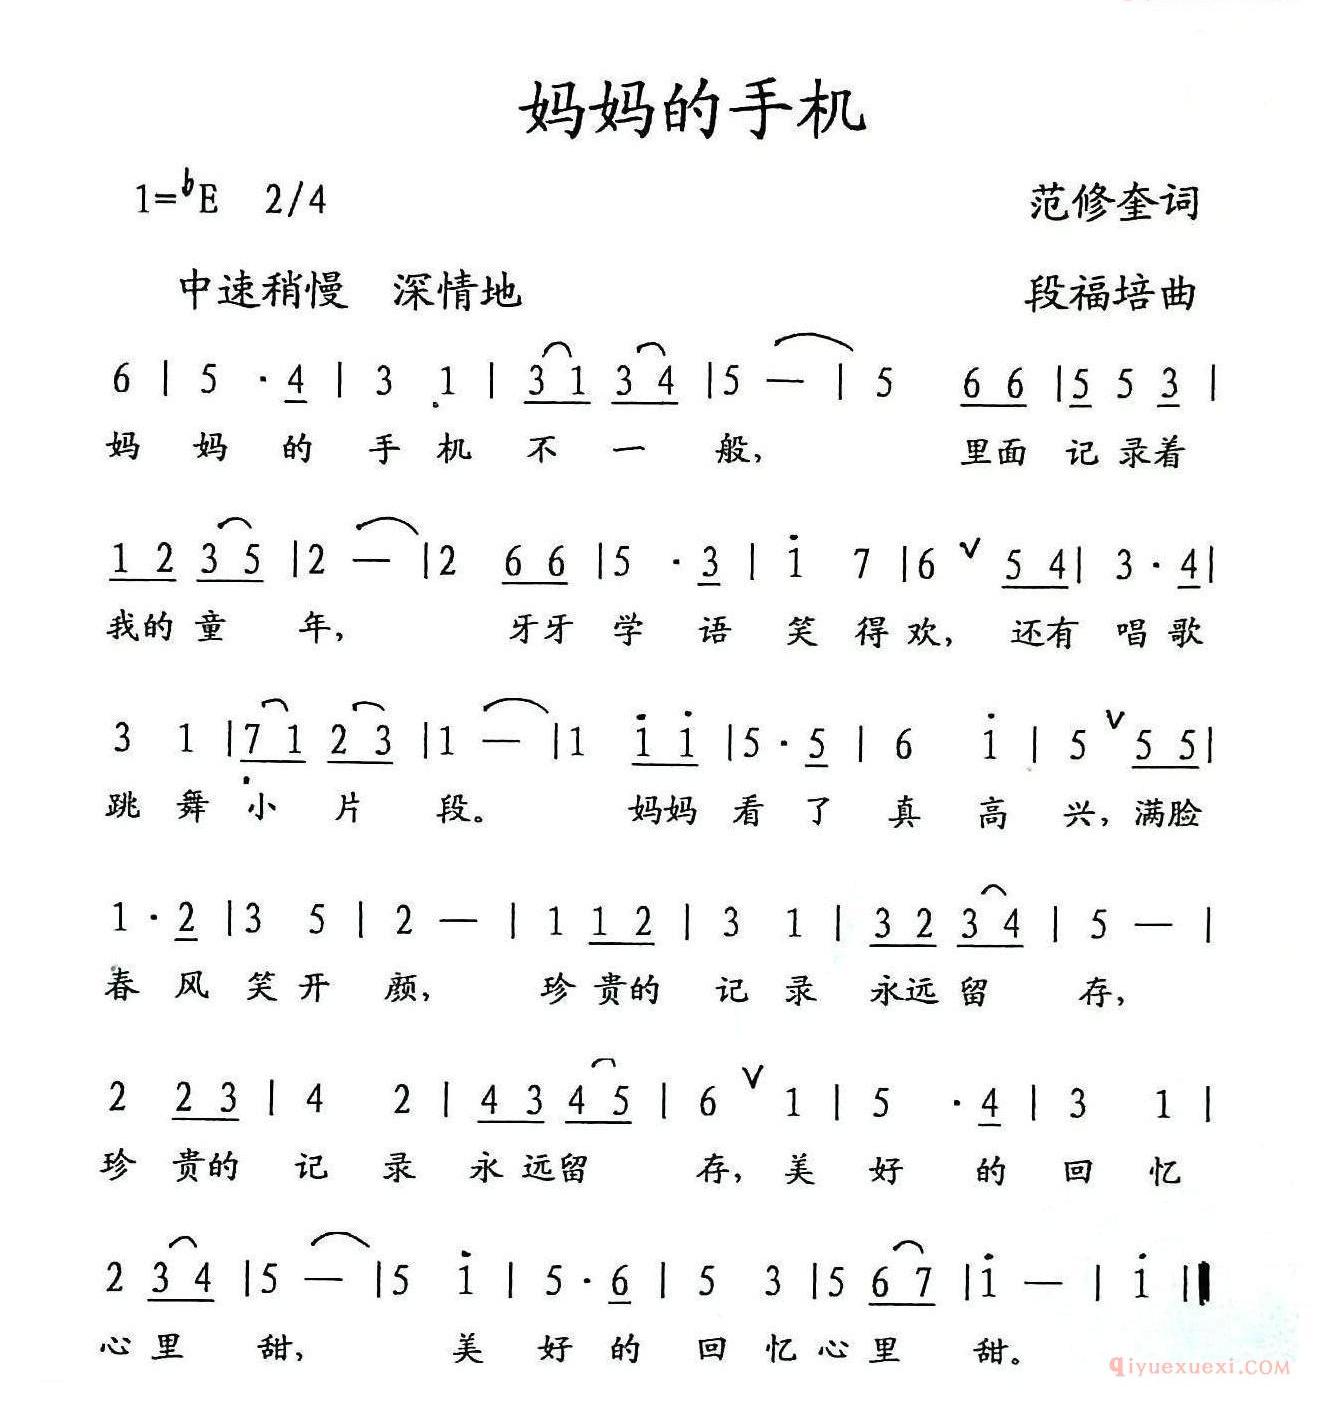 妈妈的手机
1=♭E 2/4 范修奎词
中速稍慢 深情地 段福培曲
6 | 5 · 4 | 3 1 | 3 1 3 4 | 5 — | 5 6 6 | 5 5 3 |
妈 妈 的 手 机 不 一 般, 里面 记 录着
1 2 3 5 | 2 — | 2 6 6 | 5 · 3 | i 7 | 6 ∨ 5 4 | 3 · 4 |
我的 童 年, 牙牙 学 语 笑 得 欢, 还有 唱 歌
3 1 | 7 1 2 3 | 1 — | 1 i i | 5 · 5 | 6 i | 5 ∨ 5 5 |
跳 舞 小 片 段。 妈妈 看 了 真 高 兴, 满脸
1 · 2 | 3 5 | 2 — | 1 1 2 | 3 1 | 3 2 3 4 | 5 — |
春 风 笑 开 颜, 珍 贵的 记 录 永远 留 存,
2 2 3 | 4 2 | 4 3 4 5 | 6 ∨ 1 | 5 · 4 | 3 1 |
珍 贵的 记 录 永 远留 存, 美 好 的 回 忆
2 3 4 | 5 — | 5 i | 5 · 6 | 5 3 | 5 6 7 | i — | i ‖
心 里 甜, 美 好 的 回 忆 心 里 甜。
qiyuexuexi.COM